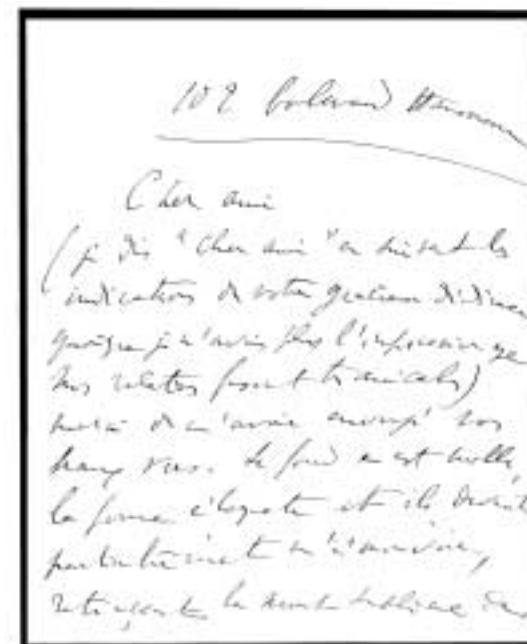 102 boulevard Haussmann
Cher ami
(je dis "Cher ami" en suivant les
indications de votre gracieuse dédicace
quoique je n'avais plus l'impression que
nos relations fussent très amicales)
merci de m'avoir envoyé vos
beaux vers. Le fond en est noble,
la forme élégante et ils
m'émouvoir,
la